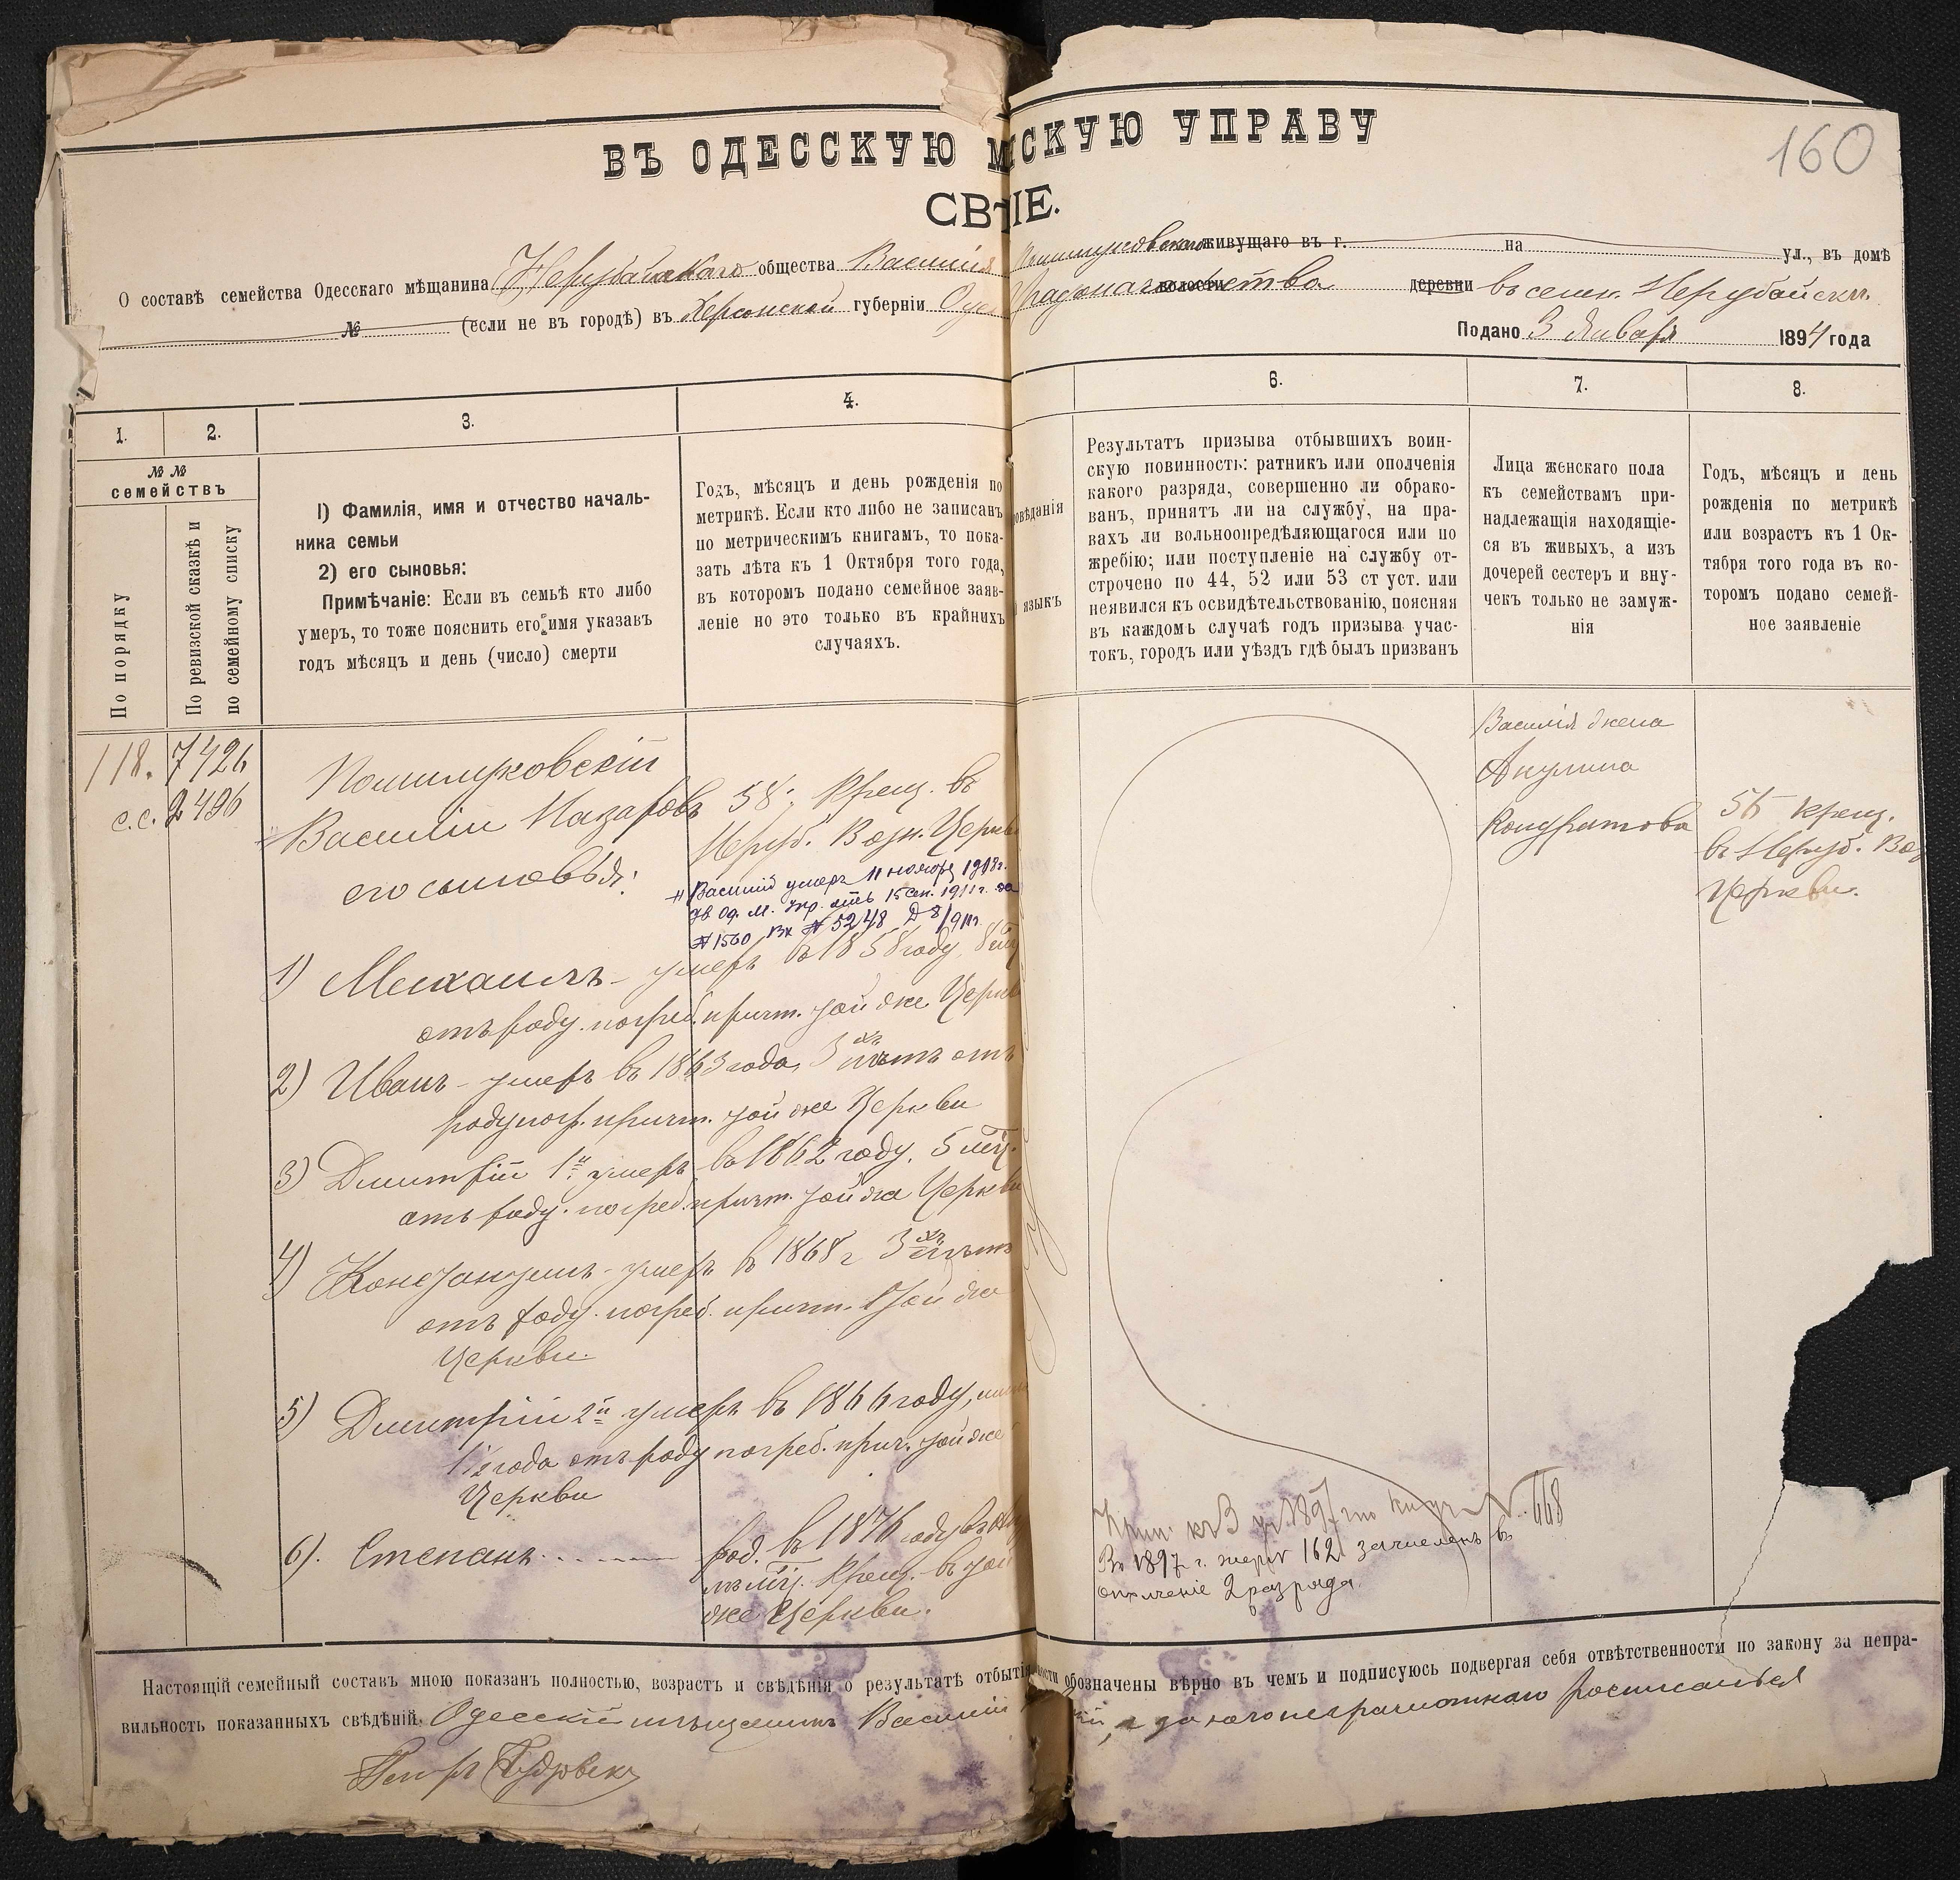 160
ВЪ ОДЕССКУЮ М СКУЮ УПРАВУ
СВѢ IE.
О составѣ семейства Одесскаго мѣщанина Нерубайскаго общества Василія живущаго въ г. на ул., въ домѣ
№ (если не въ городѣ) въ Херсонской губерніи Одес Градоначальства волости деревни въ селен. Нерубайски.
Подано 3 Января 1894 года
1. 2. 3. 4. 6. 7. 8.
№ № семействъ
По порядку
По ревизской сказкѣ и
по семейному списку
1) Фамилія, имя и отчество началь-
ника семьи
2) его сыновья:
Примѣчаніе: Если въ семьѣ кто либо
умеръ, то тоже пояснить его имя указавъ
годъ мѣсяцъ и день (число) смерти
Годъ, мѣсяцъ и день рожденія по
метрикѣ. Если кто либо не записанъ
по метрическимъ книгамъ, то пока-
зать лѣта къ 1 Октября того года,
въ которомъ подано семейное заяв-
леніе но это только въ крайнихъ
случаяхъ.
овѣданія
языкъ
Результатъ призыва отбывшихъ воин-
скую повинность: ратникъ или ополченія
какого разряда, совершенно ли обрако-
ванъ, принятъ ли на службу, на пра-
вахъ ли вольноопредѣляющагося или по
жребію; или поступленіе на службу от-
строчено по 44, 52 или 53 ст уст. или
неявился къ освидѣтельствованію, поясняя
въ каждомъ случаѣ годъ призыва учас-
токъ, городъ или уѣздъ гдѣ былъ призванъ
Лица женскаго пола
къ семействамъ при-
надлежащія находящіе-
ся въ живыхъ, а изъ
дочерей сестеръ и вну-
чекъ только не замуж-
нія
Годъ, мѣсяцъ и день
рожденія по метрикѣ
или возрастъ къ 1 Ок-
тября того года въ ко-
торомъ подано семей-
ное заявленіе
118. 7426
с.с. 2496
Василій Назаровъ 58; Крещ. въ
Неруб. Возн. Церкв
его сыновья:
Василій умеръ 11 ноября 1908г.
Од. М. Упр. отъ 15 сен. 1911 г. за
№ 1560 Вх № 5248 Д 8/911.
1) Михаилъ - умеръ въ 1858 году, 8 мѣс
отъ роду. погреб. причт. той же Церкв
2) Иванъ - умеръ въ 1863 года, 3хъ лѣтъ отъ
роду погр. причт. той же Церкви
3) Дмитрій 1й умеръ въ 1862 году, 5 мѣс.
отъ роду. погреб. причт. той же Церкви
4) Константинъ - умеръ въ 1868 г 3хъ лѣтъ
отъ роду. погреб. причт. той же
Церкви.
5) Дмитрій 2й умеръ въ 1866 году,
1½ года отъ роду погреб. прич. той же
Церкви
6). Степанъ род. въ 1876 году
мѣсц. Крещ. въ той
же Церкви.
Василія жена
Акулина
Кондратова
56 крещ.
въ Неруб. Воз
Церкви.
Въ 1897 г. жереб 162 зачисленъ въ
ополченіе 2 разряда.
Настоящій семейный составъ мною показанъ полностью, возрастъ и свѣдѣнія о результатѣ отбытія ности обозначены вѣрно въ чемъ и подписуюсь подвергая себя отвѣтственности по закону за непра-
вильность показанныхъ свѣдѣній. Одесскій мѣщанинъ Василій а за него неграмотнаго росписался
Петръ